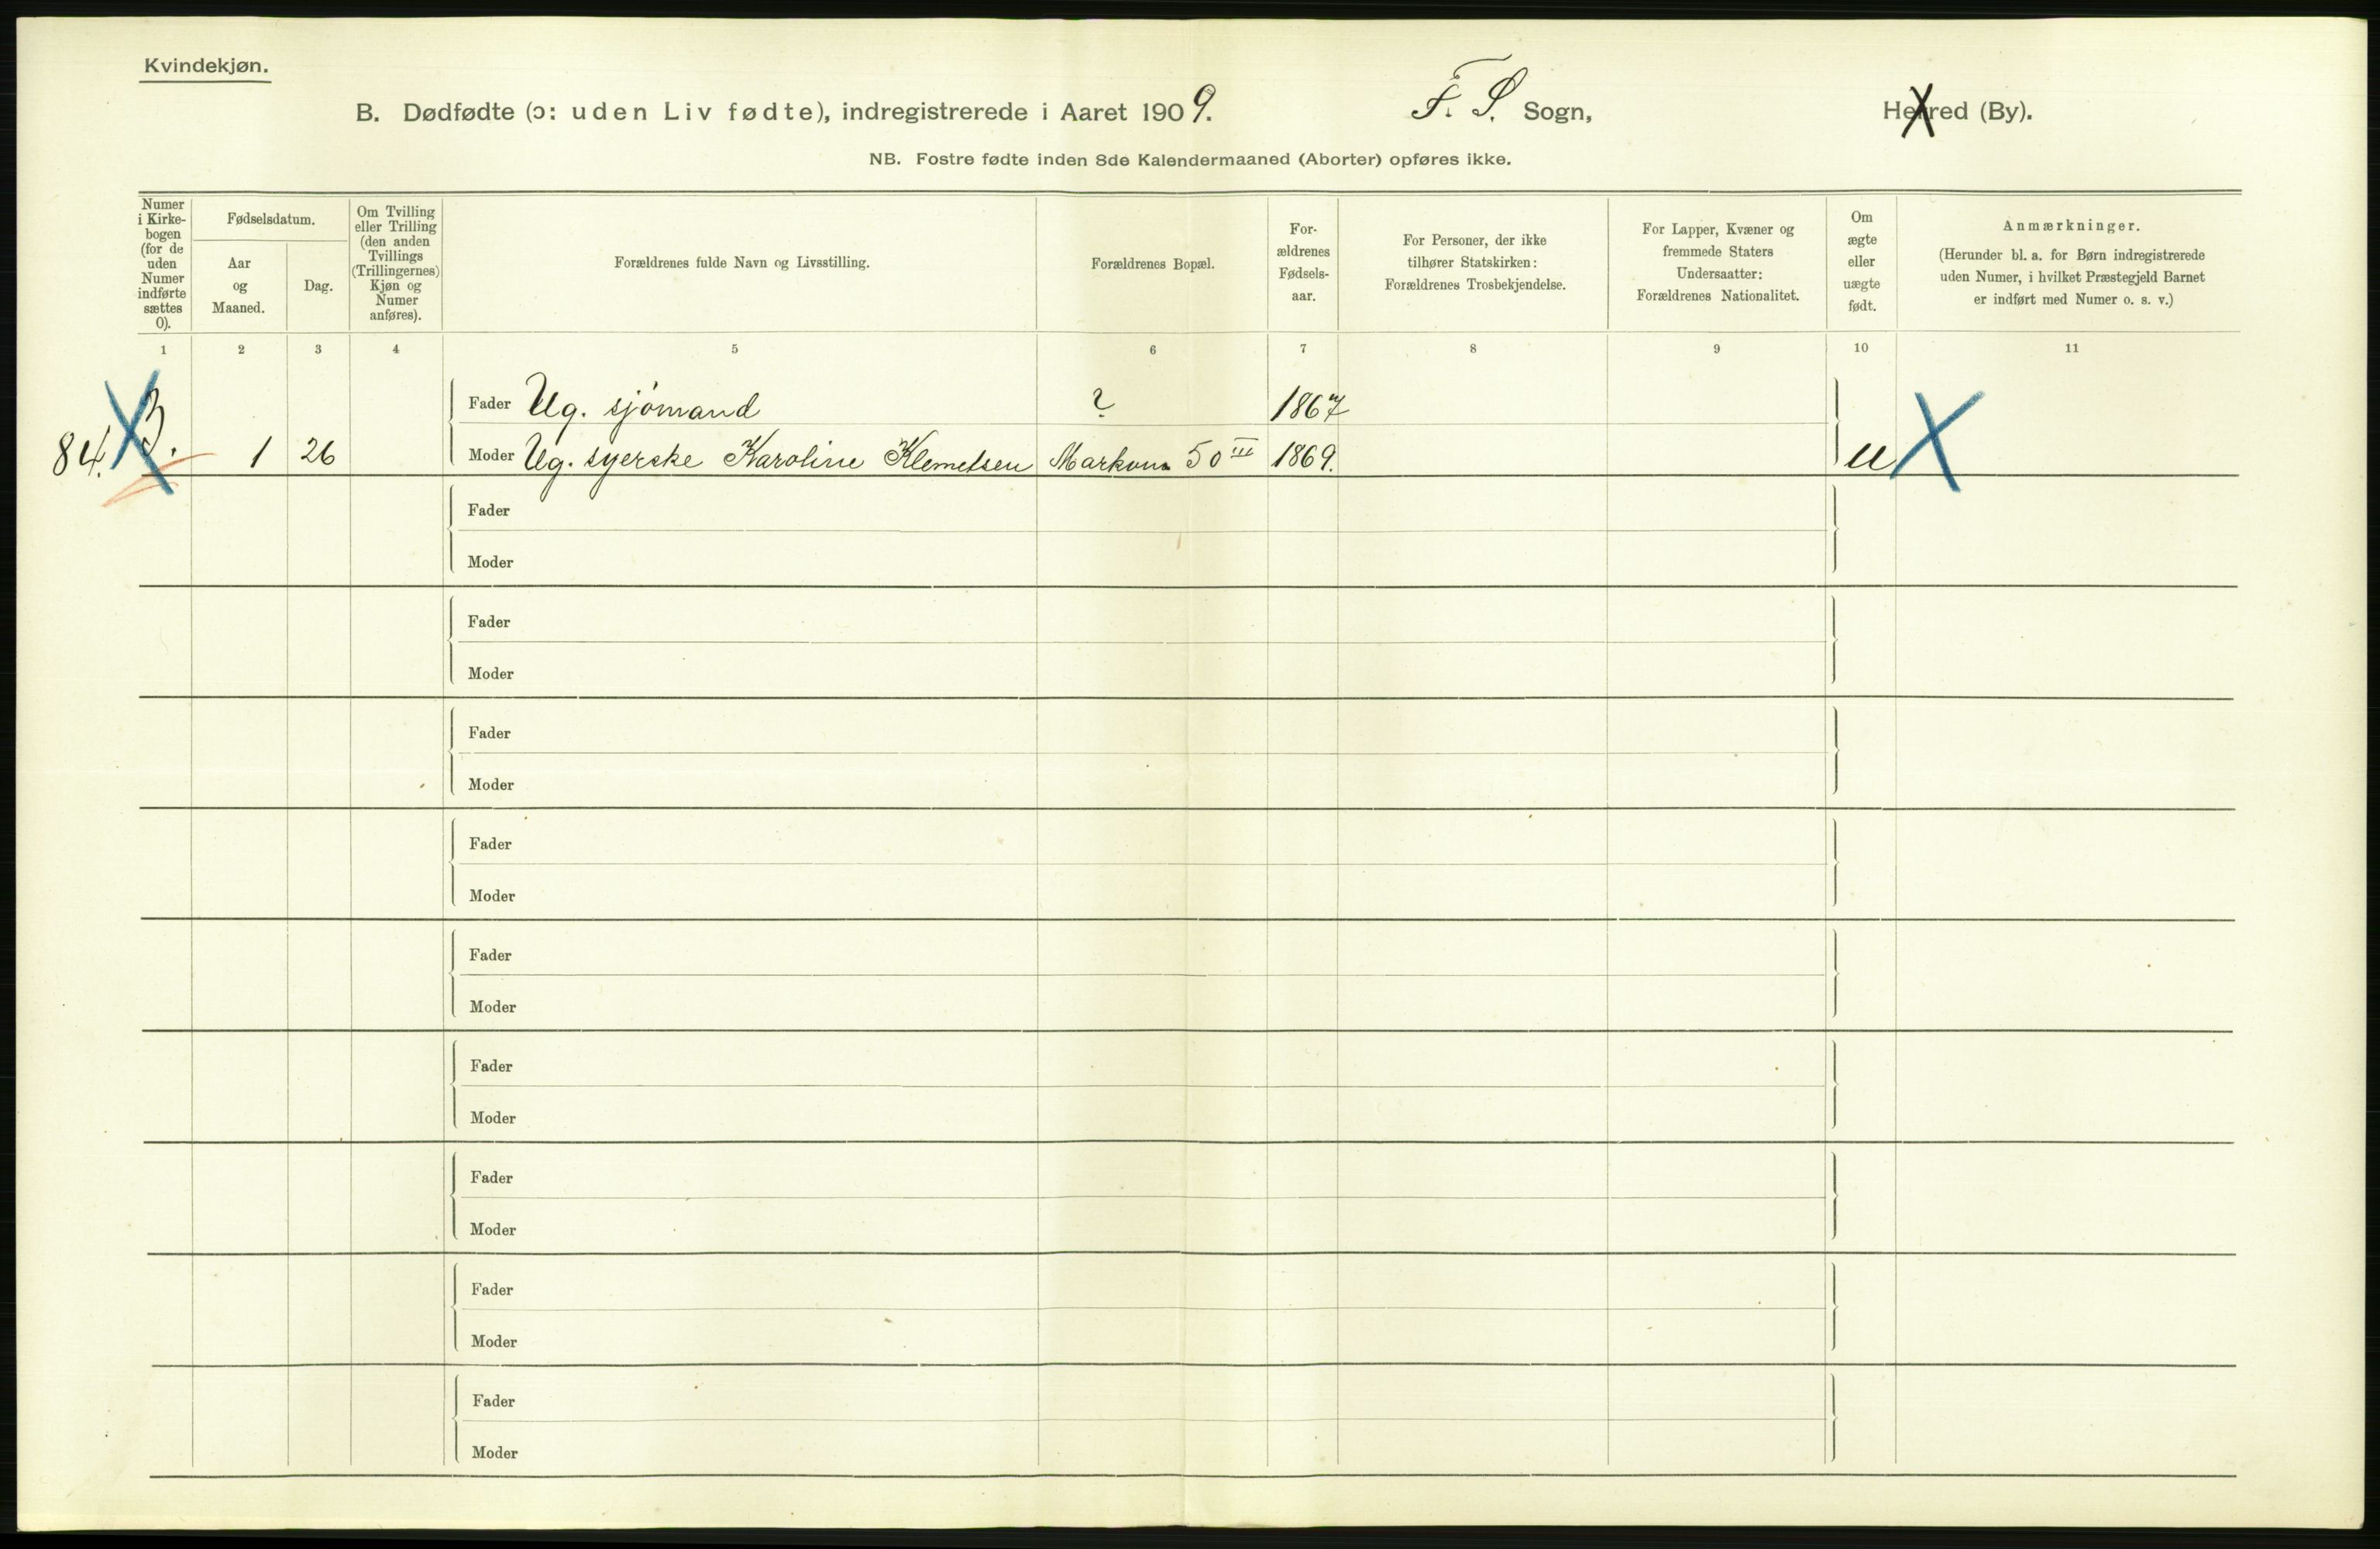 Kvindekjøn.
B. Dødfødte (ɔ: uden Liv fødte), indregistrerede i Aaret 1909. F. S. Sogn, Herred (By).
NB. Fostre fødte inden 8de Kalendermaaned (Aborter) opføres ikke.
Numer
i Kirke-
bogen
(for de
uden
Numer
indførte
sættes
0).
Fødselsdatum.
Aar
og
Maaned.
Dag.
Om Tvilling
eller Trilling
(den anden
Tvillings
(Trillingernes)
Kjøn og
Numer
anføres).
Forældrenes fulde Navn og Livsstilling.
Forældrenes Bopæl.
For-
ældrenes
Fødsels-
aar.
For Personer, der ikke
tilhører Statskirken:
Forældrenes Trosbekjendelse.
For Lapper, Kvæner og
fremmede Staters
Undersaatter:
Forældrenes Nationalitet.
Om
ægte
eller
uægte
født.
Anmærkninger.
(Herunder bl. a. for Børn indregistrerede
uden Numer, i hvilket Præstegjeld Barnet
er indført med Numer o. s. v.)
1 2 3 4 5 6 7 8 9 10 11
Fader Ug. sjömand ? 1867
84. 3. 1 26 Moder Ug. syerske Karoline Klemetsen 50 III 1869. u
Fader
Moder
Fader
Moder
Fader
Moder
Fader
Moder
Fader
Moder
Fader
Moder
Fader
Moder
Fader
Moder
Fader
Moder